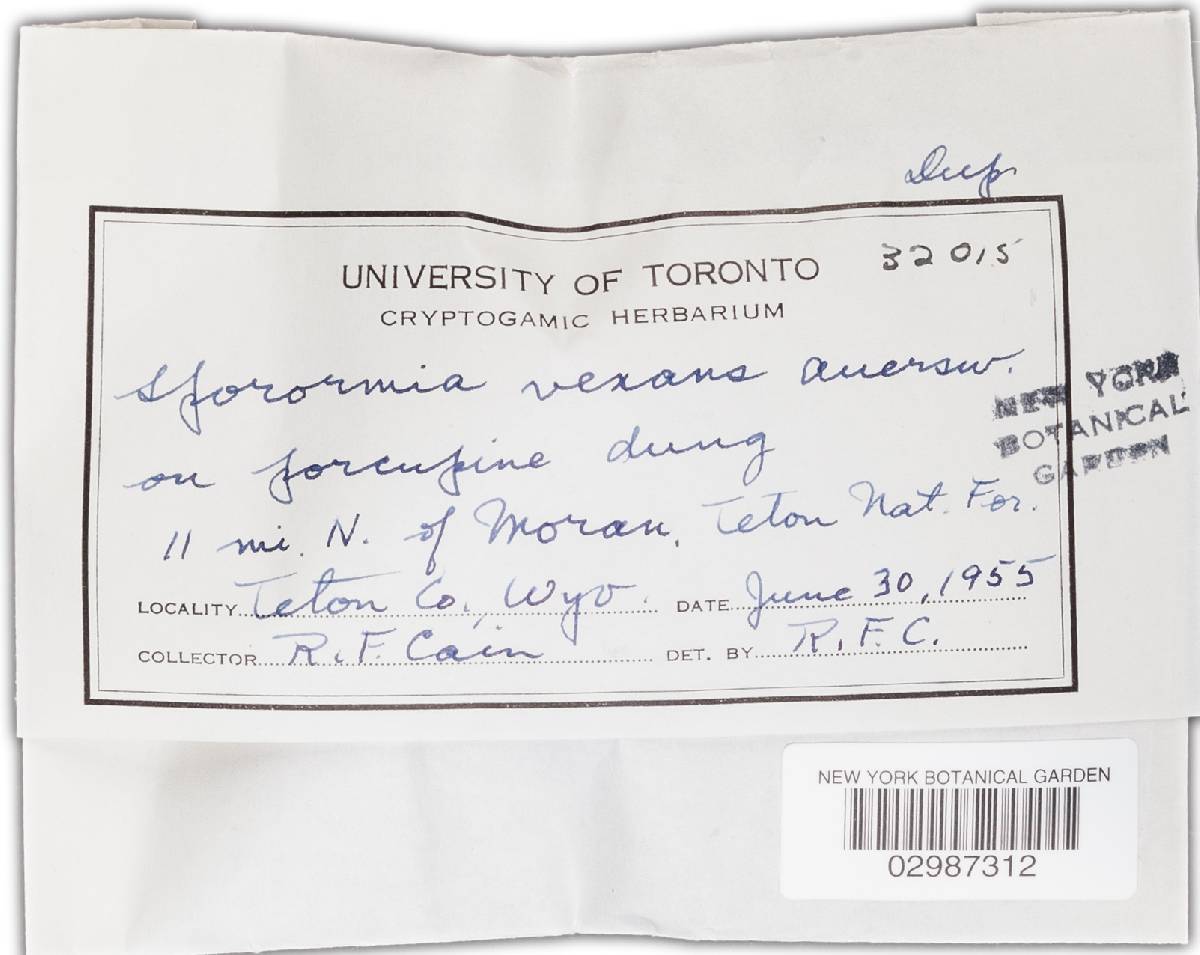 Dup
UNIVERSITY OF TORONTO 32015
CRYPTOGAMIC HERBARIUM
Sporormia vexans Auersw.
on porcupine dung
11 mi. N. of Moran, Teton Nat. For.
LOCALITY Teton Co., Wyo. DATE June 30, 1955
COLLECTOR R. F. Cain DET. BY R. F. C.
NEW YORK
BOTANICAL
GARDEN
NEW YORK BOTANICAL GARDEN
02987312